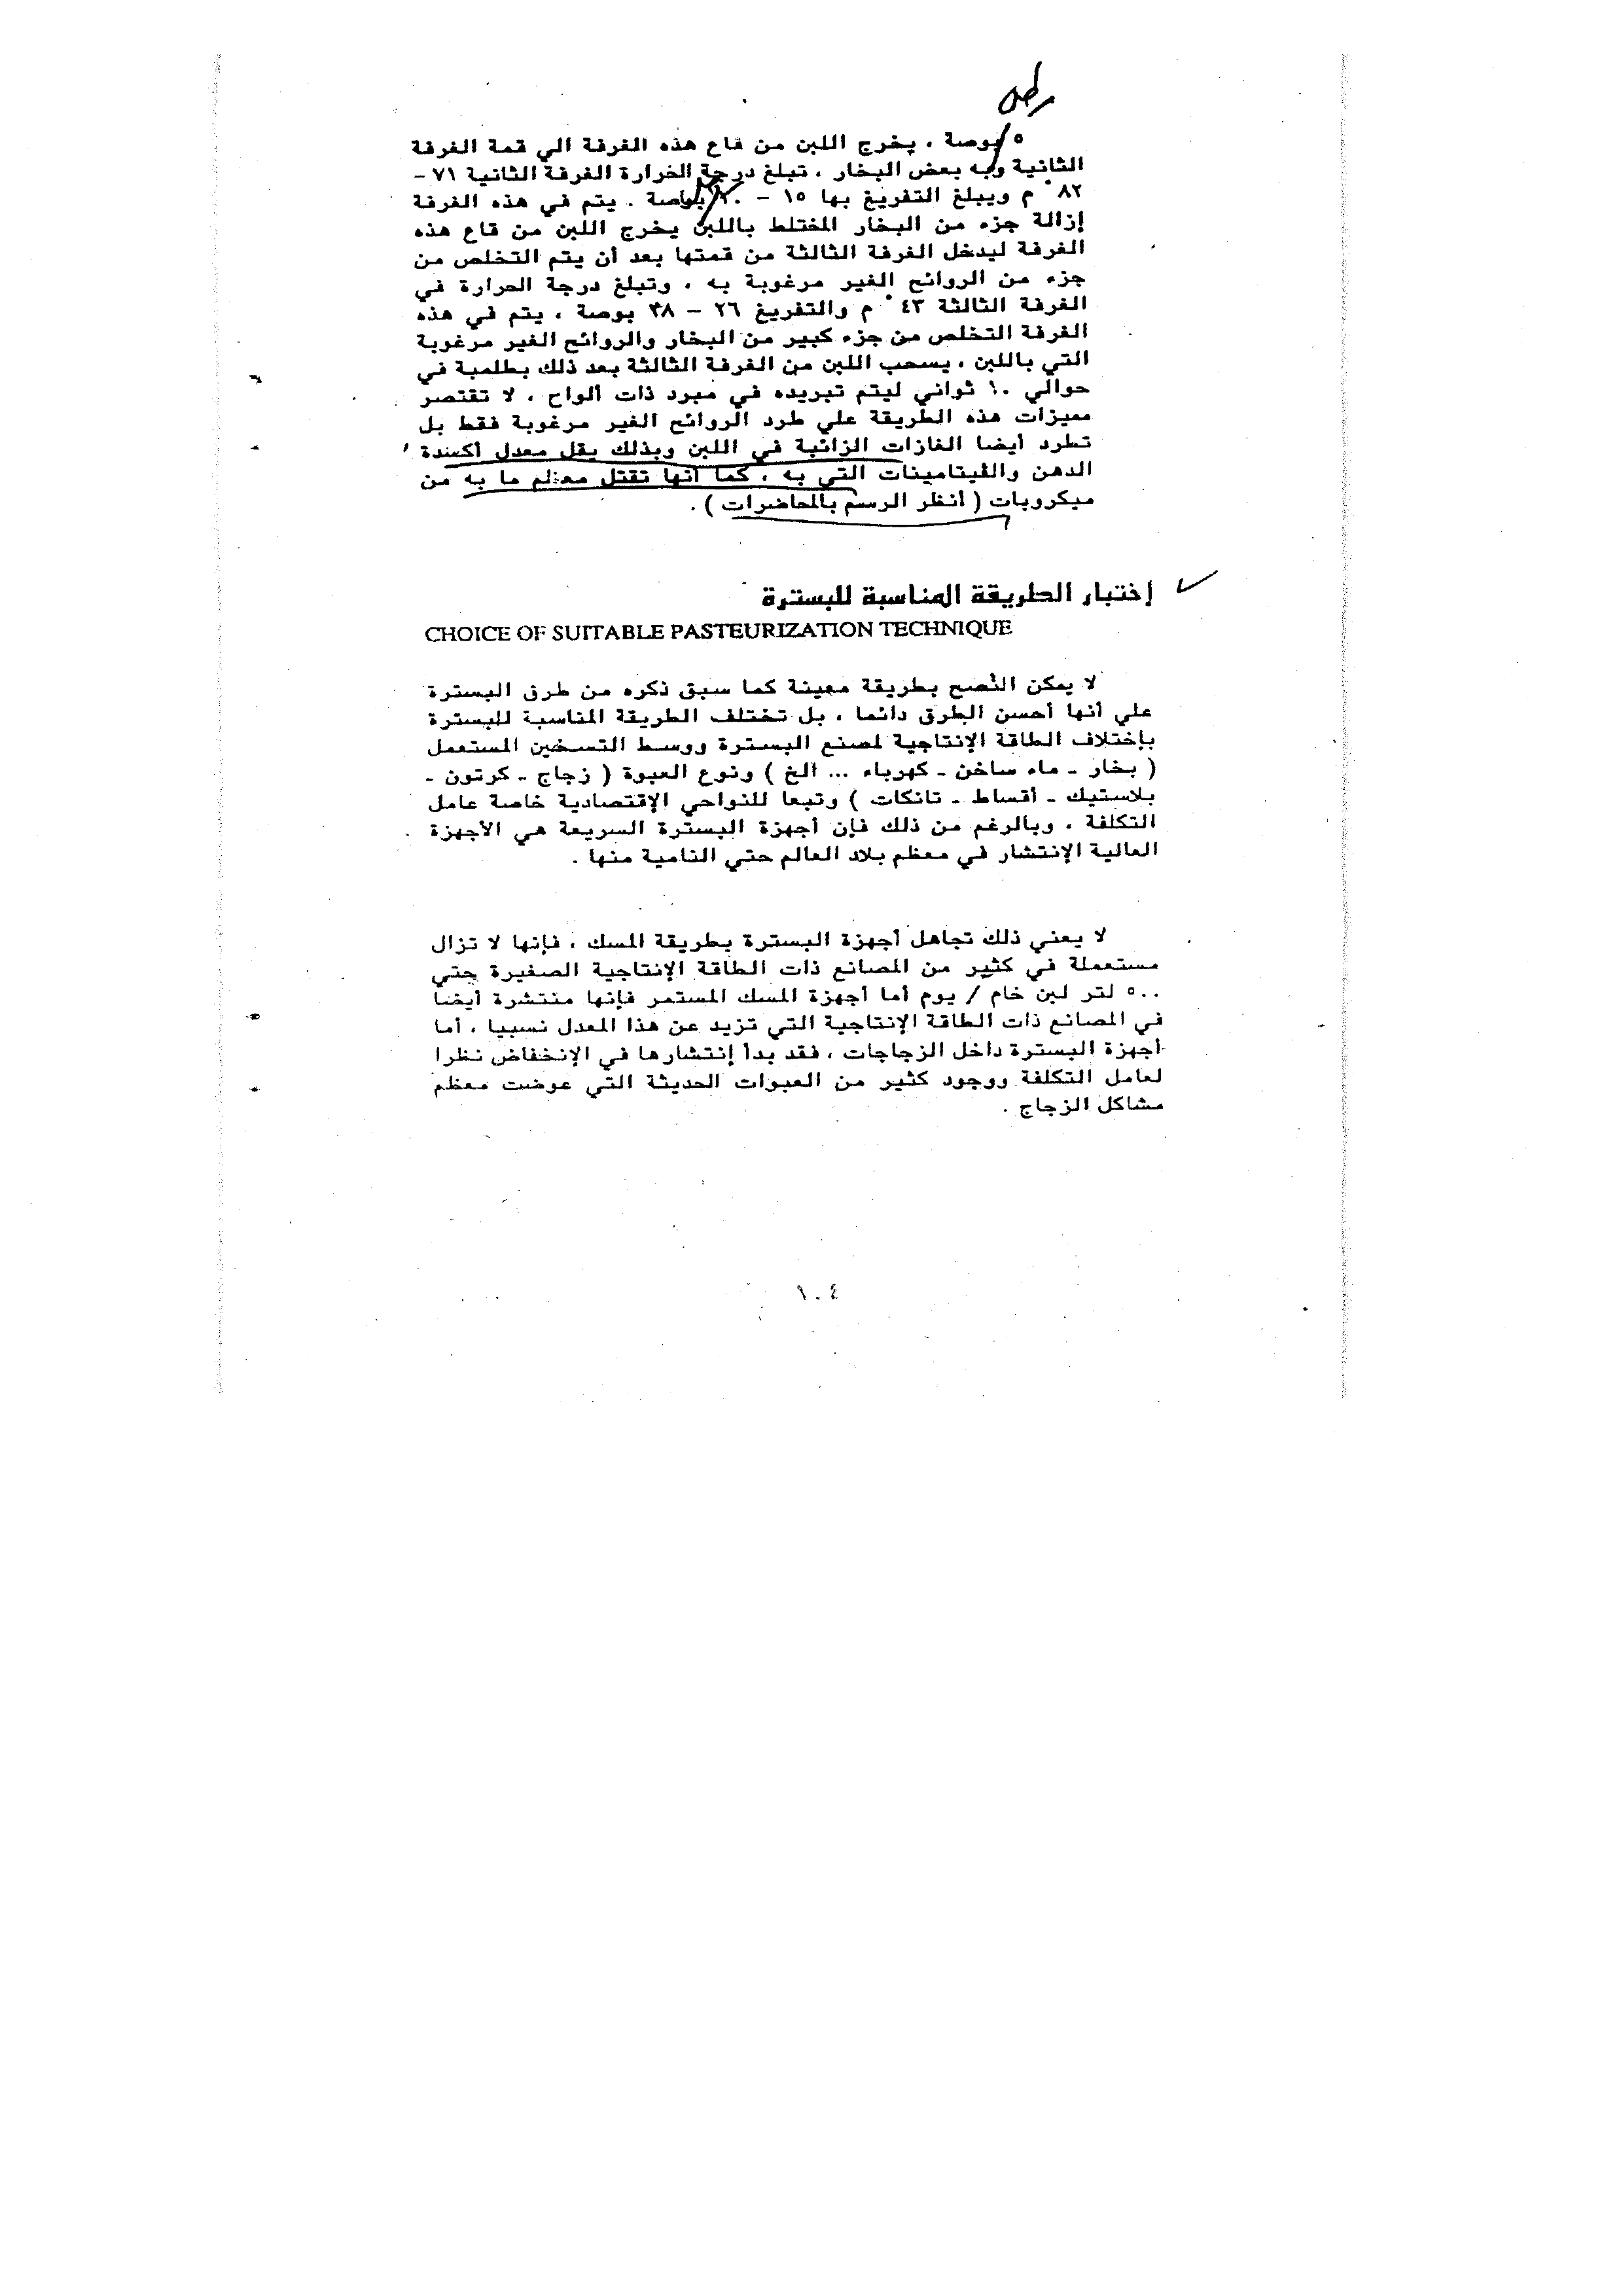 ٥ بوصة ، يخرج اللبن من قاع هذه الغرفة الي قمة الغرفة
الثانية وبه بعض البخار ، تبلغ درجة الحرارة الغرفة الثانية ٧١ –
٨٢ ْ م ويبلغ التفريغ بها ١٥ – ٢٠ بوصة . يتم في هذه الغرفة
إزالة جزء من البخار المختلط باللبن يخرج اللبن من قاع هذه
الغرفة ليدخل الغرفة الثالثة من قمتها بعد أن يتم التخلص من
جزء من الروائح الغير مرغوبة به ، وتبلغ درجة الحرارة في
الغرفة الثالثة ٤٣ ْ م والتفريغ ٢٦ – ٣٨ بوصة ، يتم في هذه
الغرفة التخلص من جزء كبير من البخار والروائح الغير مرغوبة
التي باللبن ، يسحب اللبن من الغرفة الثالثة بعد ذلك بطلمبة في
حوالي ١٠ ثواني ليتم تبريده في مبرد ذات ألواح ، لا تقتصر
مميزات هذه الطريقة علي طرد الروائح الغير مرغوبة فقط بل
تطرد أيضا الغازات الزائبة في اللبن وبذلك يقل معدل أكسدة
الدهن والفيتامينات التي به ، كما أنها تقتل معظم ما به من
ميكروبات ( أنظر الرسم بالمحاضرات ) .
إختبار الطريقة المناسبة للبسترة
CHOICE OF SUITABLE PASTEURIZATION TECHNIQUE
لا يمكن النصح بطريقة معينة كما سبق ذكره من طرق البسترة
علي أنها أحسن الطرق دائما ، بل تختلف الطريقة المناسبة للبسترة
بإختلاف الطاقة الإنتاجية لمصنع البسترة ووسط التسخين المستعمل
( بخار ـ ماء ساخن ـ كهرباء ... الخ ) ونوع العبوة ( زجاج ـ كرتون ـ
بلاستيك ـ أقساط ـ تانكات ) وتبعا للنواحي الإقتصادية خاصة عامل
التكلفة ، وبالرغم من ذلك فإن أجهزة البسترة السريعة هي الأجهزة
العالية الإنتشار في معظم بلاد العالم حتي النامية منها .
لا يعني ذلك تجاهل أجهزة البسترة بطريقة المسك ، فإنها لا تزال
مستعملة في كثير من المصانع ذات الطاقة الإنتاجية الصغيرة حتي
٥٠٠ لتر لبن خام / يوم أما أجهزة المسك المستمر فإنها منتشرة أيضا
في المصانع ذات الطاقة الإنتاجية التي تزيد عن هذا المعدل نسبيا ، أما
أجهزة البسترة داخل الزجاجات ، فقد بدأ إنتشارها في الإنخفاض نظرا
لعامل التكلفة ووجود كثير من العبوات الحديثة التي عوضت معظم
مشاكل الزجاج .
١٠٤